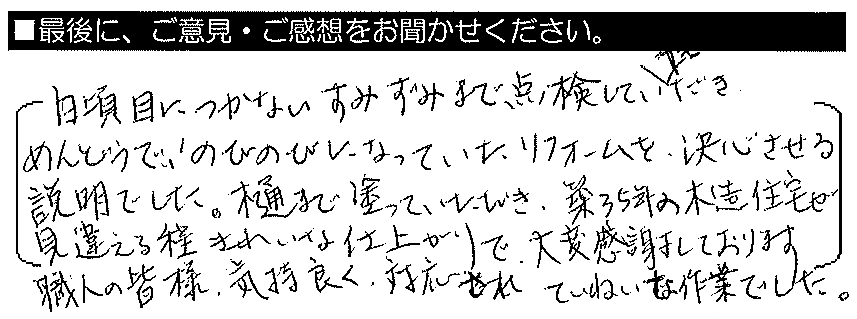 ■最後に、ご意見・ご感想をお聞かせください。
日頃目につかないすみずみまで、点検していただき
めんどうで、いのびのびになっていたリフォームを、決心させる
説明でした。樋まで塗っていただき、築35年の木造住宅が
見違える程きれいな仕上がりで、大変感謝しております
職人の皆様、気持良く、対応され ていねいな作業でした。